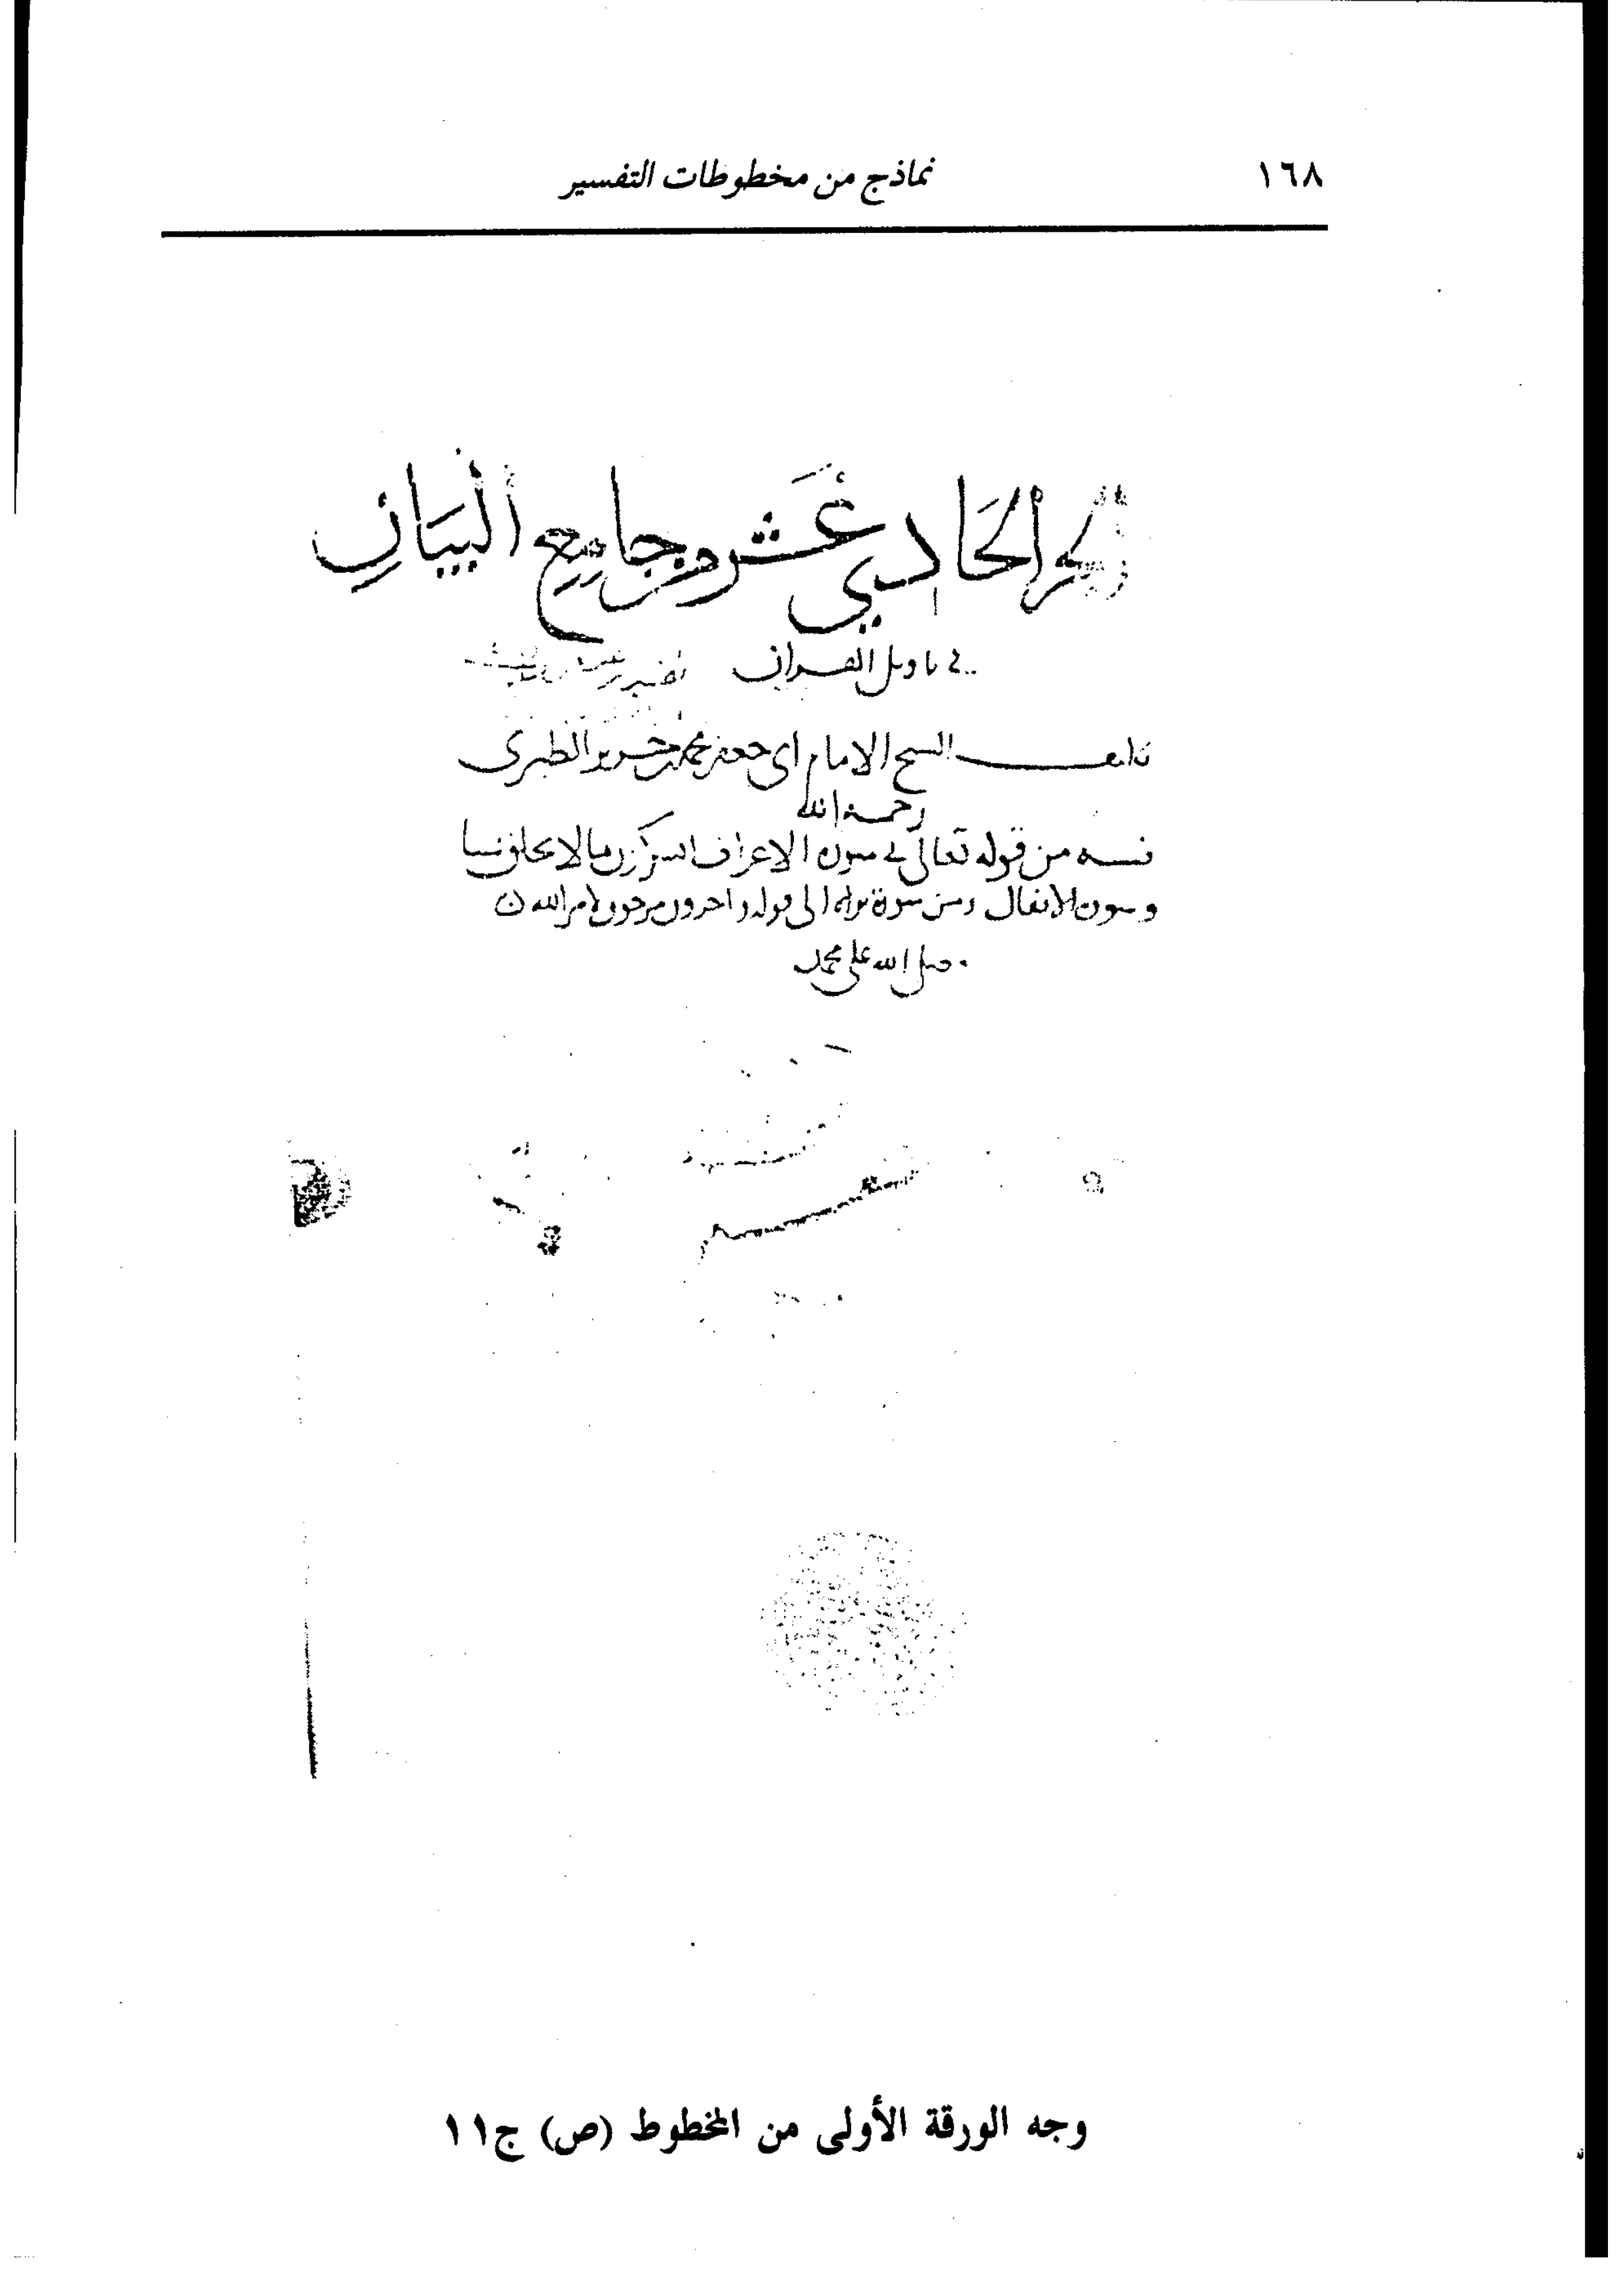 ١٦٨ نماذج من مخطوطات التفسير
الجز الحَادِي عَشَر مِن جَامِع البَيَانِ
في تاويل القران
تاليف الشيخ الامام ابي جعفر محمد بن جرير الطبري
رحمة الله
فيه من قوله تعالى في سورة الاعراف ايشركون ما لا يخلق شيا
وسورة الانفال ومن سورة براه الى قوله واخرون مرجون لامر الله
صلى الله على محمد
وجه الورقة الأولى من المخطوط (ص) ج١١